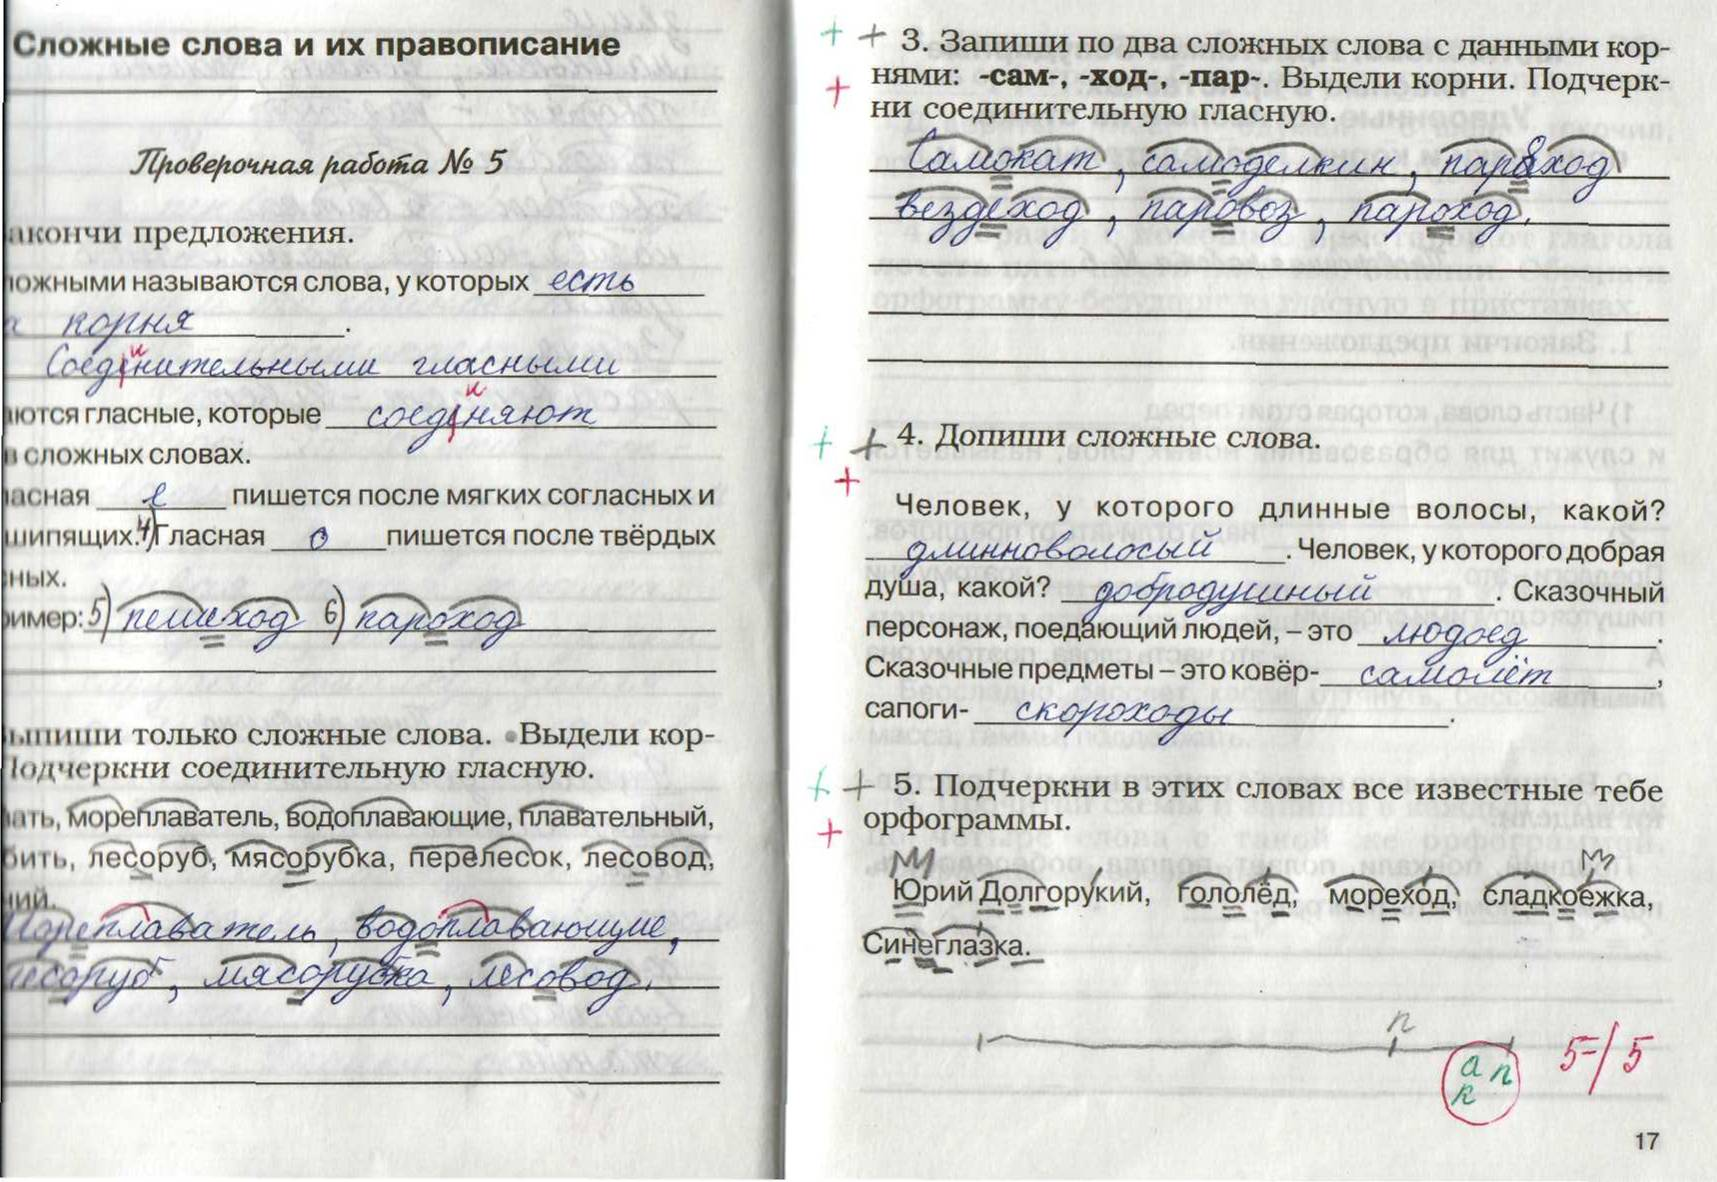 Сложные слова и их правописание
Проверочная работа № 5
акончи предложения.
ложными называются слова, у которых есть
а корня .
Соединительными гласными
аются гласные, которые соединяют
в сложных словах.
ласная е пишется после мягких согласных и
шипящих. 4) Гласная о пишется после твёрдых
сных.
ример: 5) пешеход 6) пароход
ыпиши только сложные слова. Выдели кор-
Подчеркни соединительную гласную.
ать, мореплаватель, водоплавающие, плавательный,
бить, лесоруб, мясорубка, перелесок, лесовод,
ний.
Мореплаватель, водоплавающие,
лесоруб, мясорубка, лесовод.
+ + 3. Запиши по два сложных слова с данными кор-
+ нями: -сам-, -ход-, -пар-. Выдели корни. Подчерк-
ни соединительную гласную.
Самокат, самоделкин, пароход
вездеход, паровоз, пароход.
+ + 4. Допиши сложные слова.
+
Человек, у которого длинные волосы, какой?
длинноволосый . Человек, у которого добрая
душа, какой? добродушный . Сказочный
персонаж, поедающий людей, – это людоед .
Сказочные предметы – это ковёр- самолёт ,
сапоги- скороходы .
+ + 5. Подчеркни в этих словах все известные тебе
+ орфограммы.
Юрий Долгорукий, гололёд, мореход, сладкоежка,
Синеглазка.
п
а п
к
5-/5
17